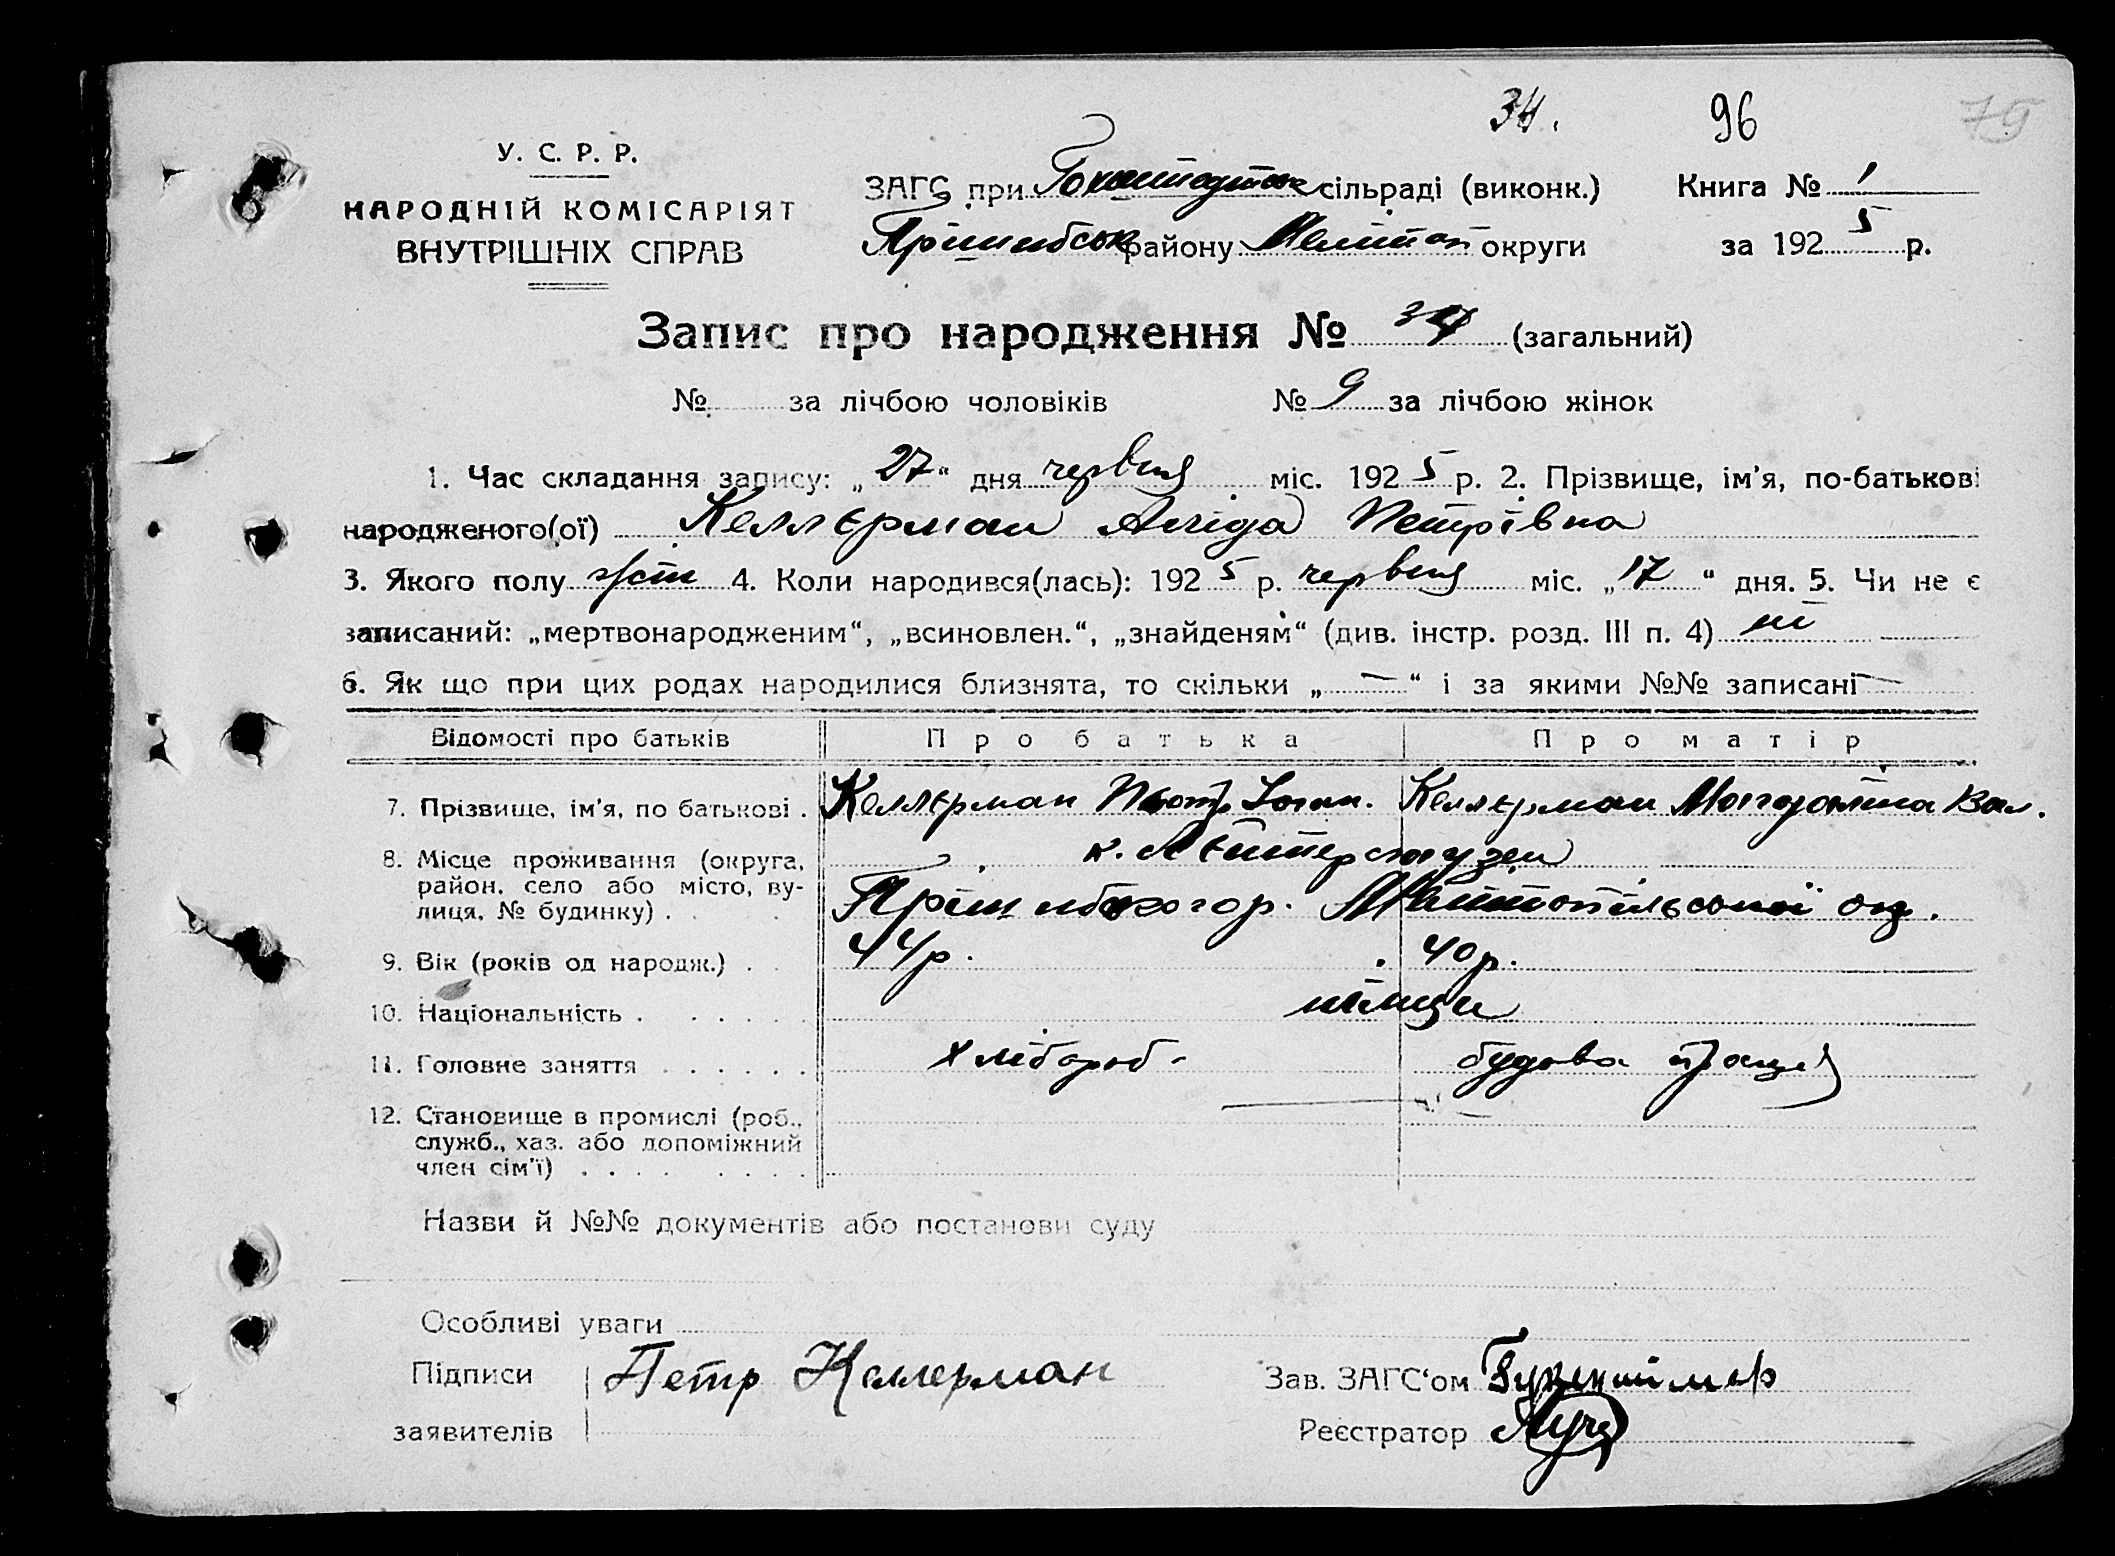 34. 96 75
У. С. Р. Р.
НАРОДНІЙ КОМІСАРІЯТ
ВНУТРІШНІХ СПРАВ
ЗАГС при Гохштадтск сільраді (виконк.) Книга № 1
Прішибськ району Меліт оп округи за 1925 р.
Запис про народження № 34 (загальний)
№ за лічбою чоловіків № 9 за лічбою жінок
1. Час складання запису: „27“ дня червня міс. 1925 р. 2. Прізвище, ім'я, по-батькові
народженого(ої) Келлєрман Аліда Петрівна
3. Якого полу жін 4. Коли народився(лась): 1925 р. червня міс. „17“ дня. 5. Чи не є
записаний: „мертвонародженим“, „всиновлен.“, „знайденям“ (див. інстр. розд. III п. 4) ні
6. Як що при цих родах народилися близнята, то скільки „—“ і за якими №№ записані —
Відомості про батьків Про батька Про матір
7. Прізвище, ім'я, по батькові . Келлєрман Петр Іоган. Келлєрман Магдаліна Вал.
8. Місце проживання (округа, район, село або місто, вулиця, № будинку) . к. Лейтерсгаузен
Прішибского р. Мелітопільської ок.
9. Вік (років од народж.) . . 44 р. 40 р.
10. Національність . . . . . . німци
11. Головне заняття . . . . . . хлібороб- будова праця
12. Становище в промислі (роб.,
служб., хаз. або допоміжний
член сім'ї) . . . . . . . .
Назви й №№ документів або постанови суду
Особливі уваги
Підписи Петр Келлерман Зав. ЗАГС'ом
заявителів Реєстратор